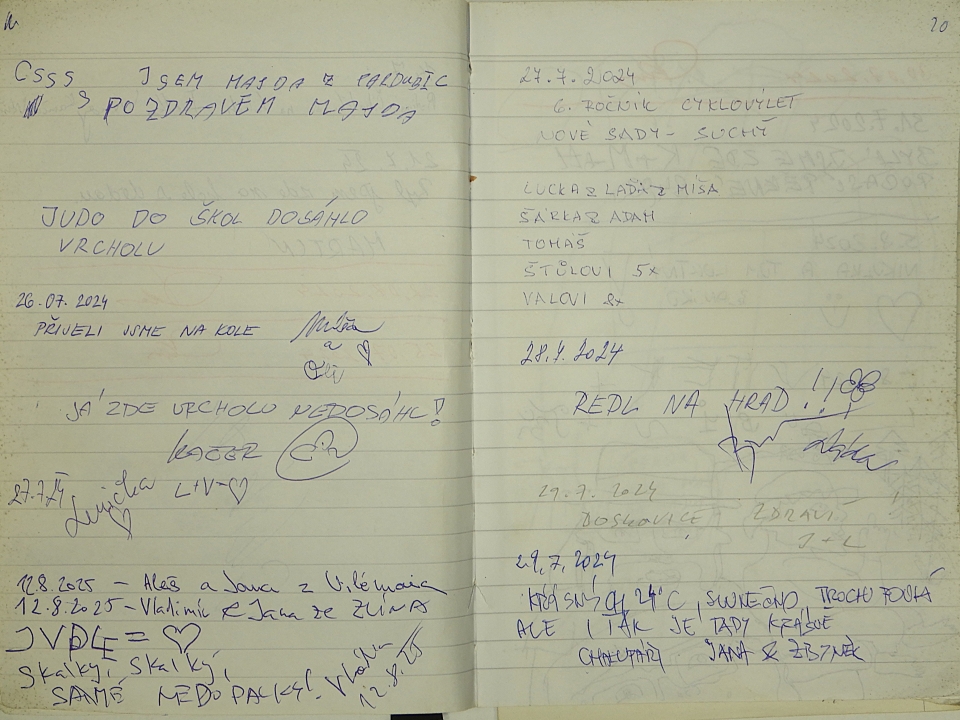 ČSSS JSEM MAJDA Z PARDUBIC
POZDRAVĚM MAJDA
JUDO DO ŠKOL DOSÁHLO
VRCHOLU
26.07.2024
PŘIJELI JSME NA KOLE
a
JÁ ZDE VRCHOLU NEDOSÁHL!
27.7.24
L+V=♡
12.8.2025 – Aleš a Jana z Vilémova
12.8.2025 – Vladimír & Jana ze ZLÍNA
= ♡
Skalky, skalky,
SAMÉ NEDOPALKY!
12.8.25
20
27.7.2024
6. ROČNÍK CYKLOVÝLET
NOVÉ SADY - SUCHÝ
LUCKA & LAĎA & MÍŠA
ŠÁRKA & ADAM
TOMÁŠ
ŠTŮLOVI 5x
VALOVI 8x
28.7.2024
REDL NA HRAD!!
29.7.2024
BOSKOVICE ZDRAVÍ
J + L
29.7.2024
KRÁSNÝCH 24°C, SLUNEČNO, TROCHU FOUKÁ
ALE I TAK JE TADY KRÁSNĚ
CHALUPÁŘI JANA & ZBYNĚK